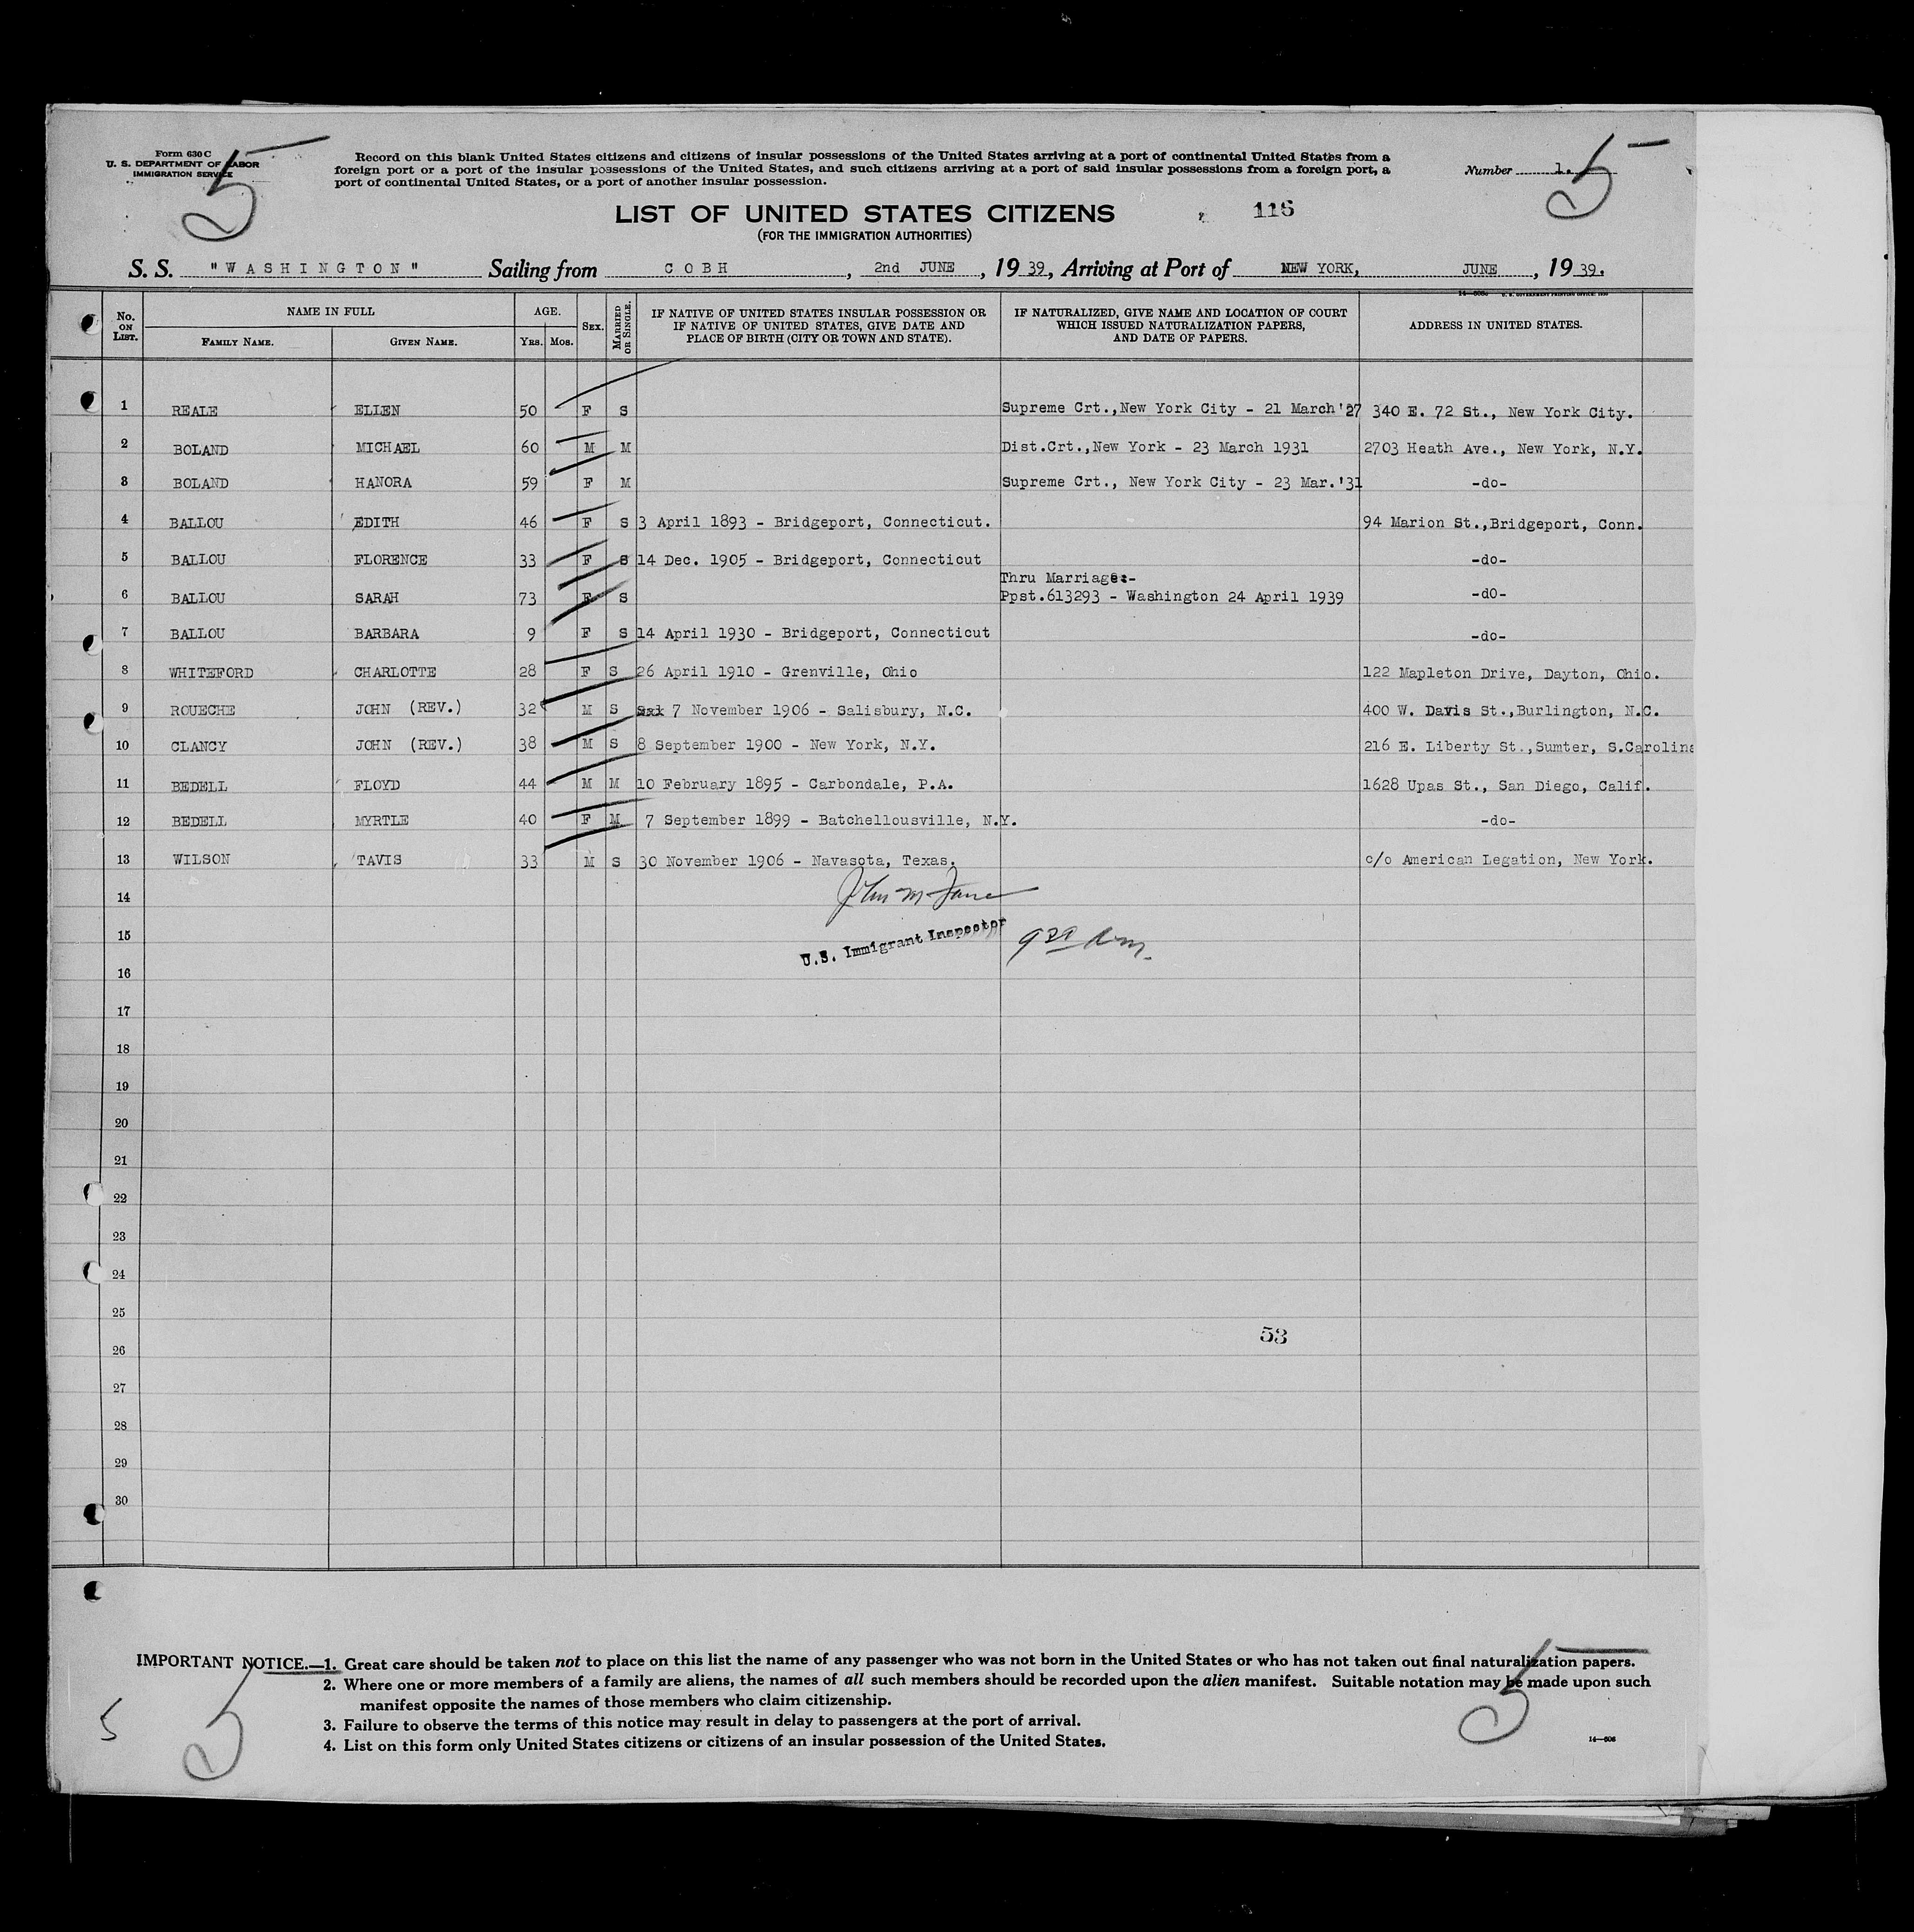 Form 630 C
U. S. DEPARTMENT OF LABOR
IMMIGRATION SERVICE
5
Record on this blank United States citizens and citizens of insular possessions of the United States arriving at a port of continental United States from a
foreign port or a port of the insular possessions of the United States, and such citizens arriving at a port of said insular possessions from a foreign port, a
port of continental United States, or a port of another insular possession.
Number 1.
5
LIST OF UNITED STATES CITIZENS
116
(FOR THE IMMIGRATION AUTHORITIES)
S. S. "WASHINGTON" Sailing from COBH, 2nd JUNE, 1939, Arriving at Port of NEW YORK, JUNE, 1939.
No. ON LIST. NAME IN FULL FAMILY NAME. GIVEN NAME. AGE. YRS. MOS. SEX. MARRIED OR SINGLE. IF NATIVE OF UNITED STATES INSULAR POSSESSION OR IF NATIVE OF UNITED STATES, GIVE DATE AND PLACE OF BIRTH (CITY OR TOWN AND STATE). IF NATURALIZED, GIVE NAME AND LOCATION OF COURT WHICH ISSUED NATURALIZATION PAPERS, AND DATE OF PAPERS. ADDRESS IN UNITED STATES.
1 REALE ELLEN 50 F S Supreme Crt.,New York City - 21 March'27 340 E. 72 St., New York City.
2 BOLAND MICHAEL 60 M M Dist.Crt.,New York - 23 March 1931 2703 Heath Ave., New York, N.Y.
3 BOLAND HANORA 59 F M Supreme Crt., New York City - 23 Mar.'31 -do-
4 BALLOU EDITH 46 F S 3 April 1893 - Bridgeport, Connecticut. 94 Marion St.,Bridgeport, Conn.
5 BALLOU FLORENCE 33 F S 14 Dec. 1905 - Bridgeport, Connecticut -do-
Thru Marriage:-
6 BALLOU SARAH 73 F S Ppst.613293 - Washington 24 April 1939 -dO-
7 BALLOU BARBARA 9 F S 14 April 1930 - Bridgeport, Connecticut -do-
8 WHITEFORD CHARLOTTE 28 F S 26 April 1910 - Grenville, Ohio 122 Mapleton Drive, Dayton, Ohio.
9 ROUECHE JOHN (REV.) 32 M S 7 November 1906 - Salisbury, N.C. 400 W. Davis St.,Burlington, N.C.
10 CLANCY JOHN (REV.) 38 M S 8 September 1900 - New York, N.Y. 216 E. Liberty St.,Sumter, S.Carolina
11 BEDELL FLOYD 44 M M 10 February 1895 - Carbondale, P.A. 1628 Upas St., San Diego, Calif.
12 BEDELL MYRTLE 40 F M 7 September 1899 - Batchellousville, N.Y. -do-
13 WILSON TAVIS 33 M S 30 November 1906 - Navasota, Texas. c/o American Legation, New York.
14
15 U.S. Immigrant Inspector
16
17
18
19
20
21
22
23
24
25
53
26
27
28
29
30
IMPORTANT NOTICE.—1. Great care should be taken not to place on this list the name of any passenger who was not born in the United States or who has not taken out final naturalization papers.
2. Where one or more members of a family are aliens, the names of all such members should be recorded upon the alien manifest. Suitable notation may be made upon such
manifest opposite the names of those members who claim citizenship.
3. Failure to observe the terms of this notice may result in delay to passengers at the port of arrival.
4. List on this form only United States citizens or citizens of an insular possession of the United States.
14—606
5
5
5